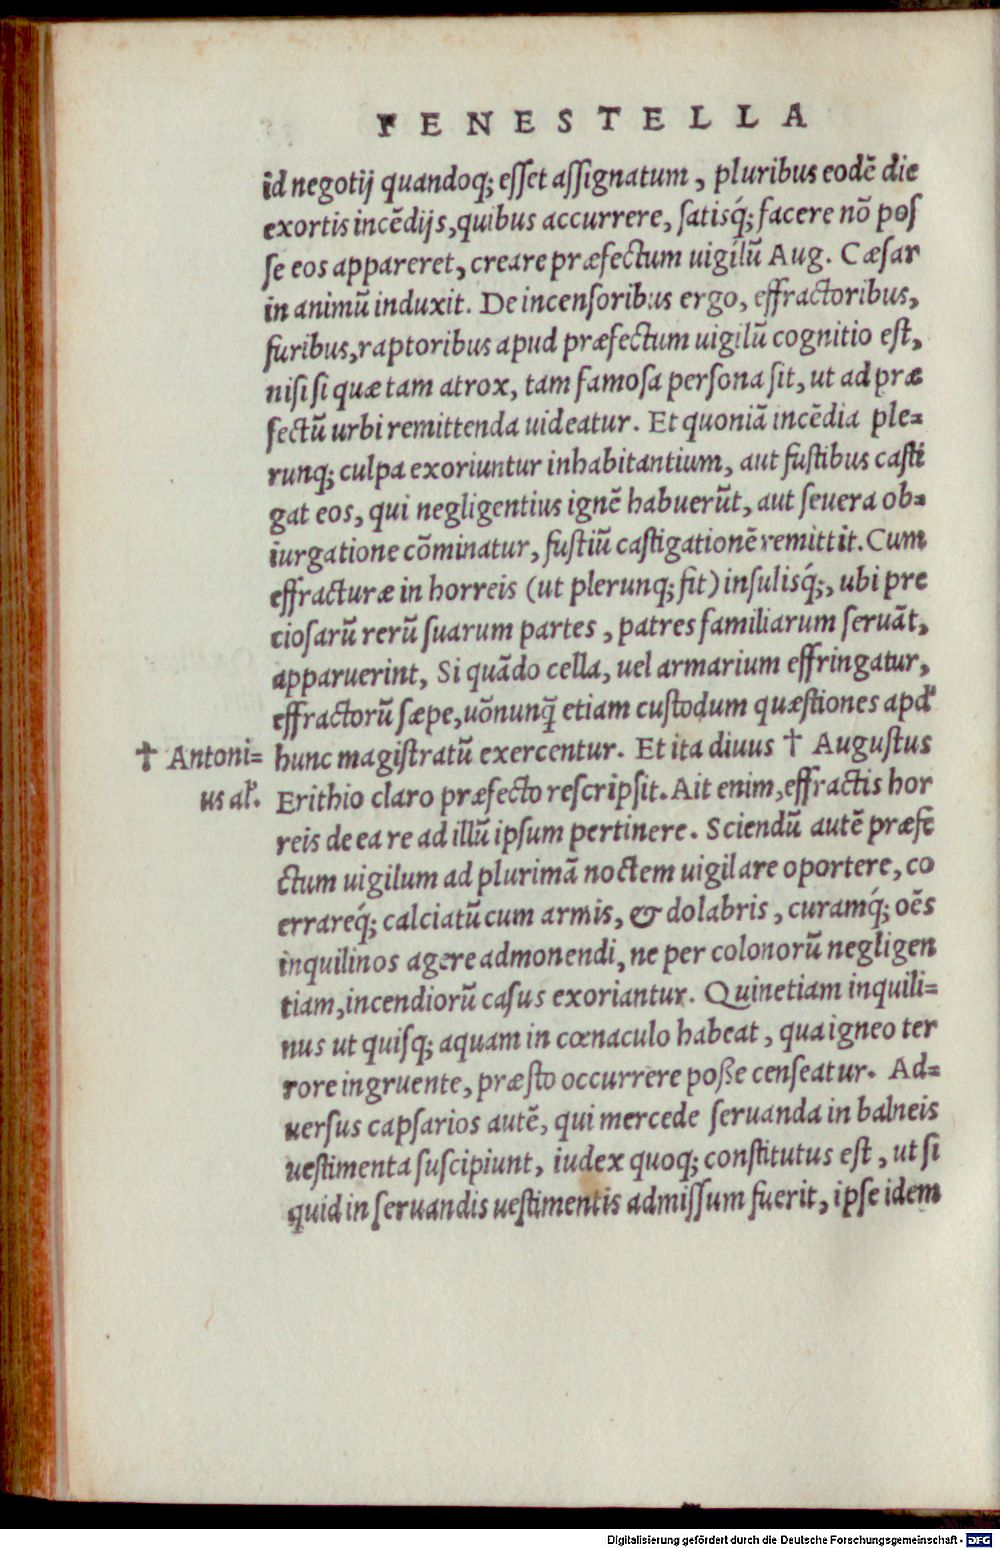 FENESTELLA
id negotij quandoq; eſſet aſſignatum, pluribus eodē die
exortis incēdijs, quibus accurrere, ſatisq́; facere nō poſ
ſe eos appareret, creare præfectum uigilū Aug. Cæſar
in animū induxit. De incenſoribus ergo, effractoribus,
furibus, raptoribus apud præfectum uigilū cognitio eſt,
niſi ſi quæ tam atrox, tam famoſa perſona ſit, ut ad præ
fectū urbi remittenda uideatur. Et quoniā incēdia ple=
runq; culpa exoriuntur inhabitantium, aut fuſtibus caſti
gat eos, qui negligentius ignē habuerūt, aut ſeuera ob=
iurgatione cōminatur, fuſtiū caſtigationē remittit. Cum
effracturæ in horreis (ut plerunq; fit) inſulisq́;, ubi pre
cioſarū rerū ſuarum partes, patres familiarum ſeruāt,
apparuerint, Si quādo cella, uel armarium effringatur,
effractorū ſæpe, uōnunq̄ etiam cuſtodum quæſtiones apd'
✝ Antoni= hunc magiſtratū exercentur. Et ita diuus ✝ Auguſtus
us al'. Erithio claro præfecto reſcripſit. Ait enim, effractis hor
reis de ea re ad illū ipſum pertinere. Sciendū autē præfe
ctum uigilum ad plurimā noctem uigilare oportere, co
errareq́; calciatū cum armis, & dolabris, curamq́; oēs
inquilinos agere admonendi, ne per colonorū negligen
tiam, incendiorū caſus exoriantur. Quinetiam inquili=
nus ut quiſq; aquam in cœnaculo habeat, qua igneo ter
rore ingruente, præſto occurrere poße cenſeatur. Ad=
uerſus capſarios autē, qui mercede ſeruanda in balneis
ueſtimenta ſuſcipiunt, iudex quoq; conſtitutus eſt, ut ſi
quid in ſeruandis ueſtimentis admiſſum fuerit, ipſe idem
Digitalisierung gefördert durch die Deutsche Forschungsgemeinschaft - DFG